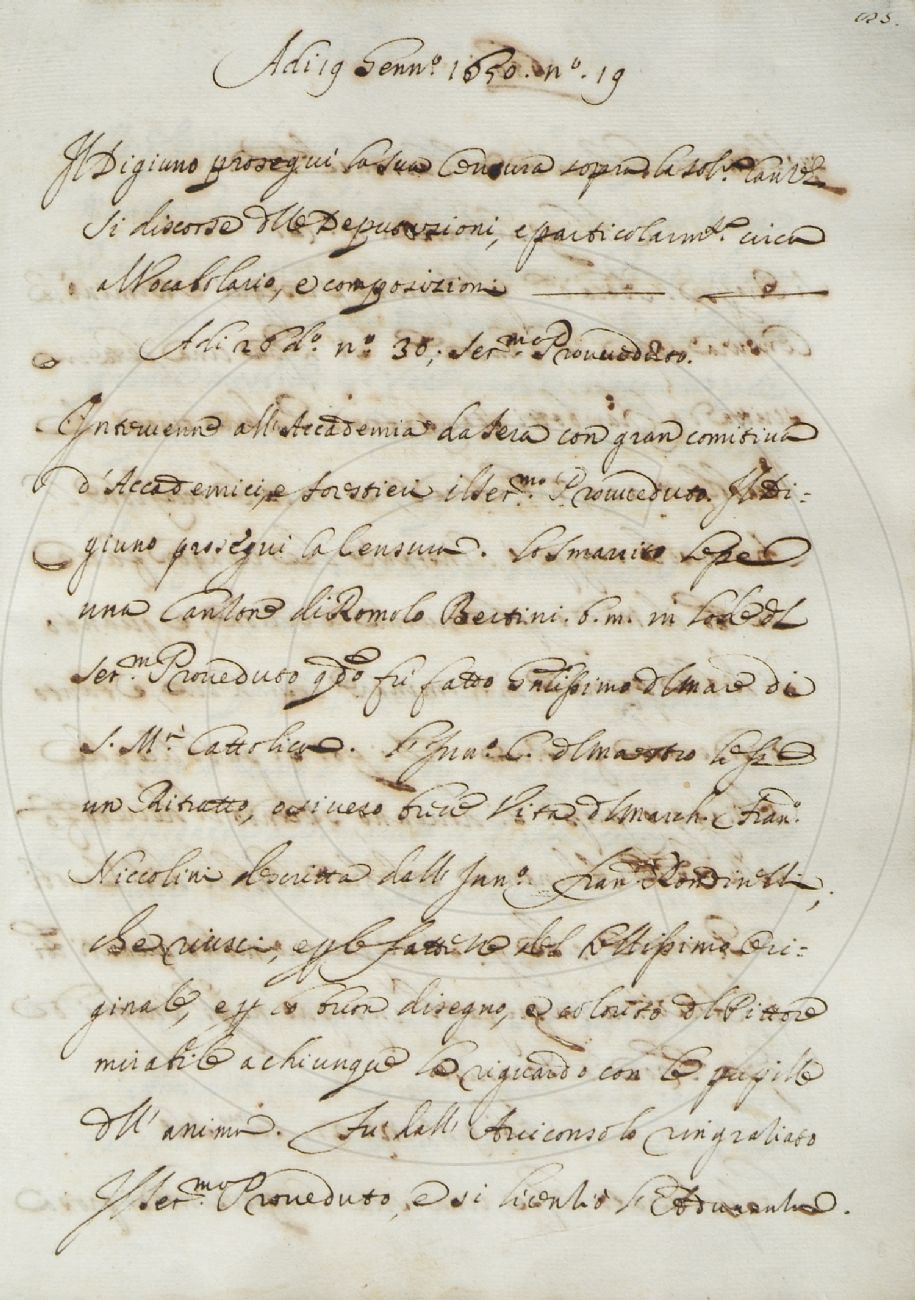 Adi 19 Genn.º 1650. nº. 19
Il Digiuno proseguì la sua Censura sopra la sol.ª
si discorse dlle Deputazioni, e particolarmte. circa
al Vocabolario, e composizioni
Adi 26 dº. nº. 30; Ser.mo Provveduto.
Intervenne all'Accademia da sera con gran comitiva
d'Accademici, e forestieri il Ser.mo Provveduto. Il Di-
giuno proseguì la Censura. Lo Smarrito lesse
una Canzone di Romolo Bertini. b. m. in lode dl
Ser.m Proveduto qdo fù fatto Gnlissimo dl mare di
S. M.tà Cattolica. L'Inn.º C. dl maestro lesse
un Ritratto, o sia vero breve Vita dl March. Fran.º
Niccolini descritta dall'Inn.º Fran.º Rondinelli,
che riuscì, e p le fattezze del bellissimo Ori-
ginale, e p il buon disegno, e colorito dl Pittore
mirabile a chiunque lo riguardò con le pupille
dll'anima. Fu dall'Arciconsolo ringraziato
Il Ser.mo Proveduto, e si licenziò l'Adunanza.